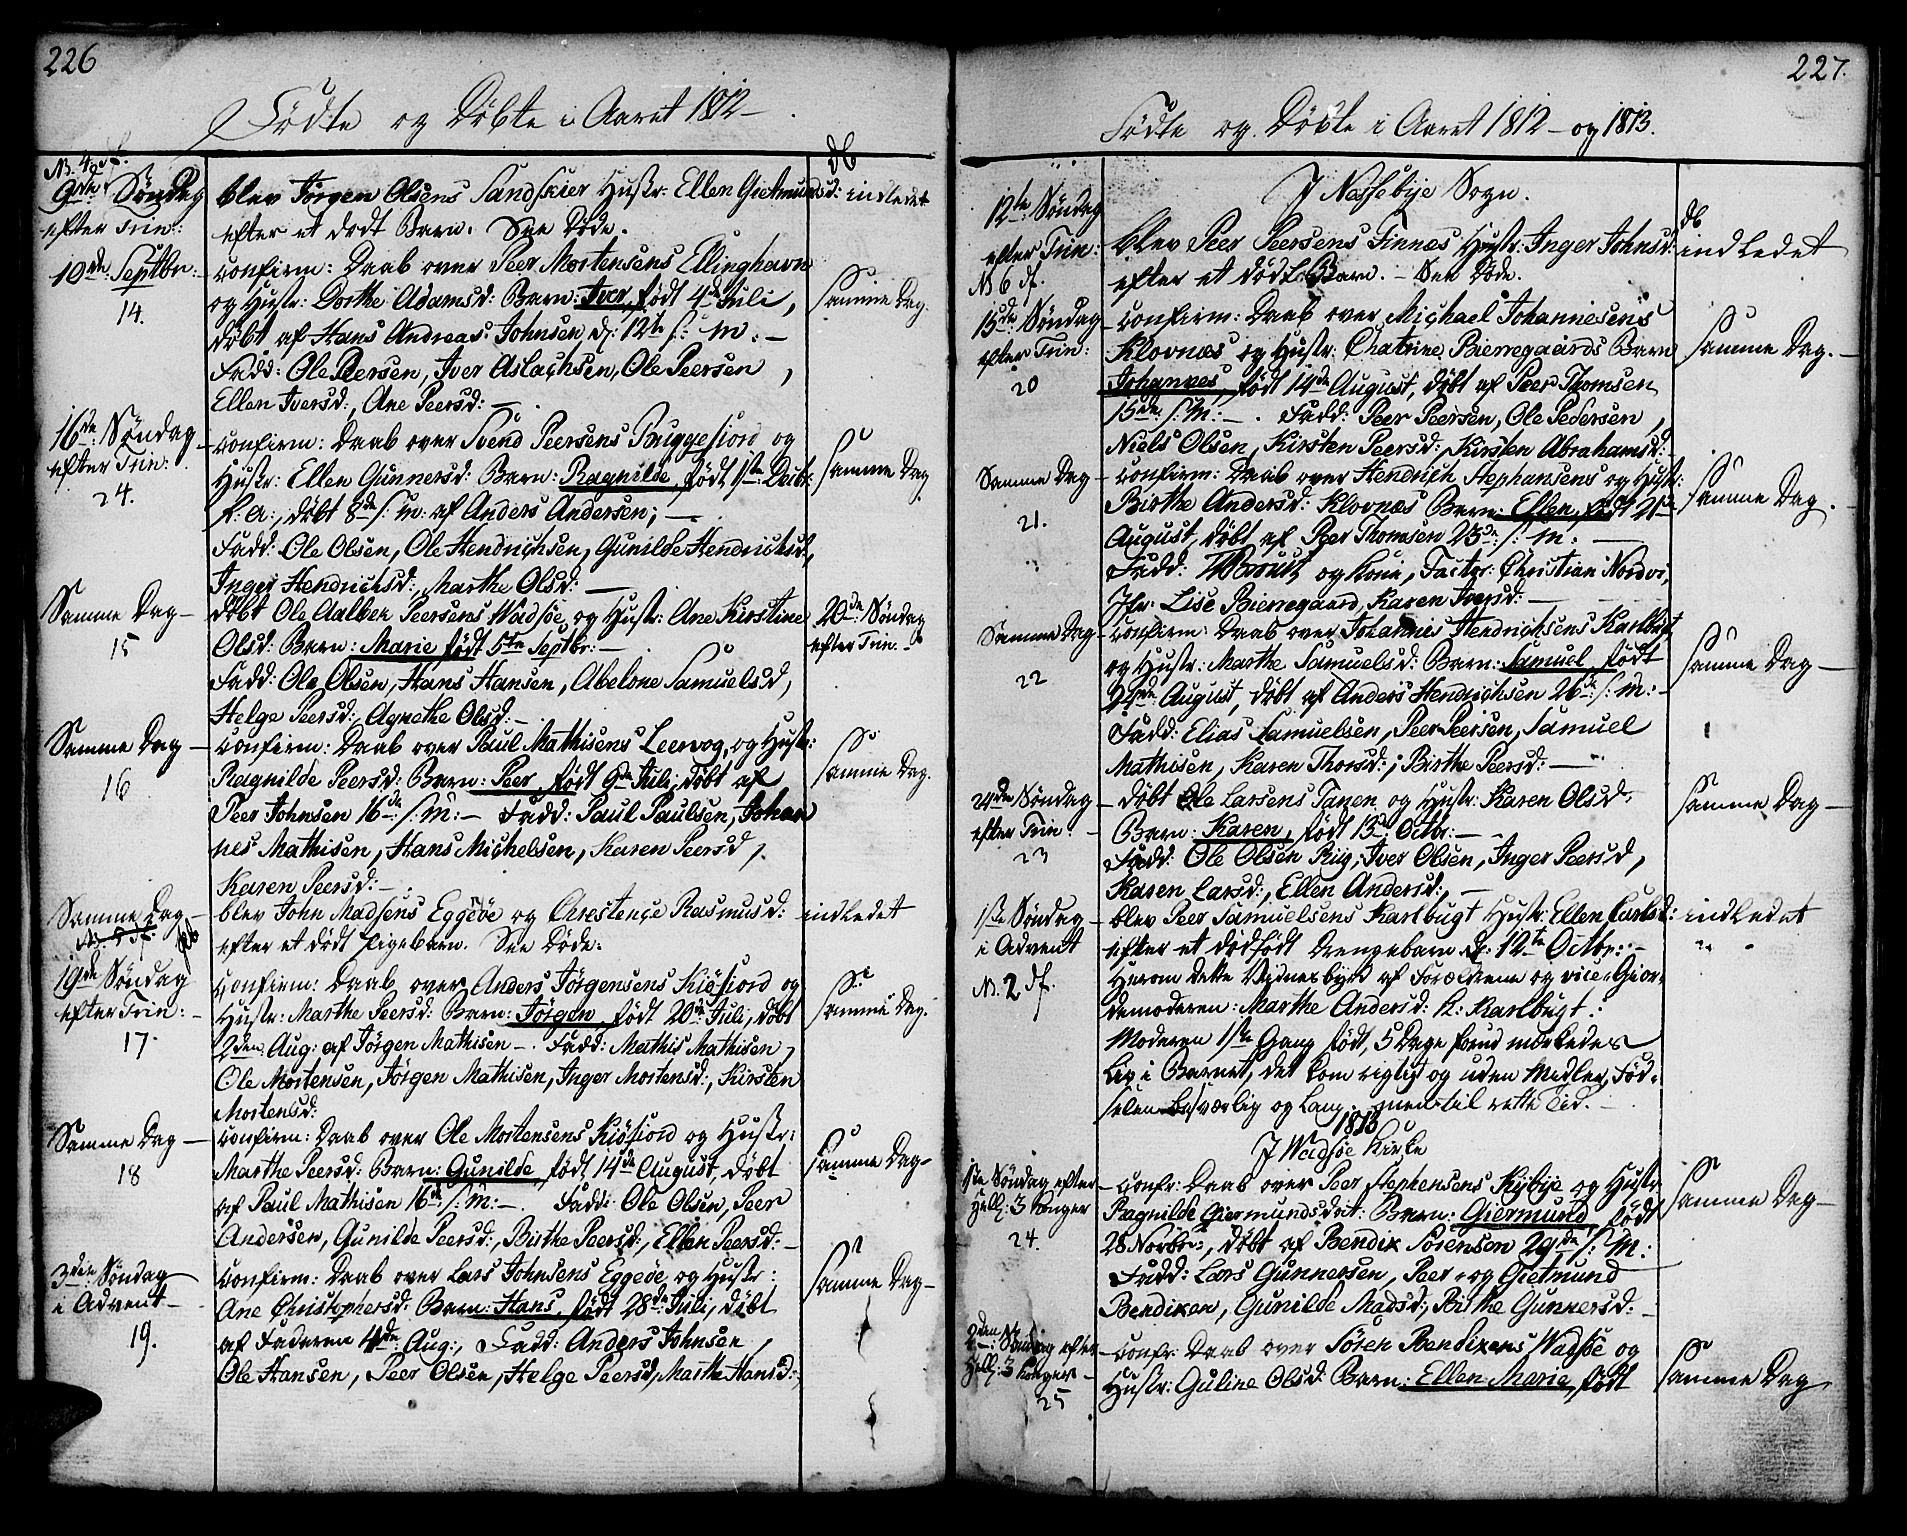 226
Födte og Döbte i Aaret 1812 —
No. 4 df.
9de Söndag
efter Trin:
blev Jörgen Olsens Sandskier Hustr: Ellen Gietmundsd: indledet
efter et dödt Barn. See Döde.
10de Septbr:
14.
confirm: Daab over Peer Mortensens Ellinghavn
og Hustr: Dorthe Adamsd: Barn: Iver, födt 4de Juli,
döbt af Hans Andreas Johnsen, d: 12te s: m: —
Fadd: Ole Peersen, Iver Aslachsen, Ole Peersen,
Ellen Iversd:, Ane Peersd: —
samme Dag.
16de Söndag
efter Trin:
24.
confirm: Daab over Svend Peersens Buggefiord og
Hustr: Ellen Gunnersd: Barn: Ragnilde, födt 1ste Decbr:
f: a:, döbt 8de s: m: af Anders Andersen; —
Fadd: Ole Olsen, Ole Hendrichsen, Gunilde Hendrichsd:,
Inger Hendrichsd:, Marthe Olsd: —
samme Dag
Samme Dag —
15
döbt Ole Aalben Peersens Wadsöe, og Hustr: Ane Kirstine
Olsd: Barn: Marie födt 5te Septbr: —
Fadd: Ole Olsen, Hans Hansen, Abelone Samuelsd,
Helge Peersd:, Agnethe Olsd: —
20de Söndag
efter Trin:
Samme Dag —
16
confirm: Daab over Paul Mathisens Leervog, og Hustr:
Ragnilde Peersd: Barn: Peer, födt 9de Juli, döbt af
Peer Johnsen 16de s: m: — Fadd: Paul Paulsen, Johan
nes Mathisen, Hans Michelsen, Karen Peersd,
Karen Peersd: —
samme Dag.
Samme Dag —
No. 5 df.
blev John Madsens Eggeöe og Chrestence Rasmusd: indledet
efter et dödt Pigebarn. See Döde.
19de Söndag
efter Trin:
17.
confirm: Daab over Anders Jörgensens Kiöfiord og
Hustr: Marthe Peersd: Barn: Jörgen, födt 20de Juli, döbt
2den Aug: af Jörgen Mathisen —. Fadd: Mathis Mathisen,
Ole Mortensen, Jörgen Mathisen, Inger Mortensd:, Kirsten
Mortensd:
samme Dag.
Samme Dag —
18
confirm: Daab over Ole Mortensens Kiöfiord og Hustr:
Marthe Peersd: Barn: Gunilde, födt 14de August, döbt
af Paul Mathisen 16de s: m: —. Fadd: Ole Olsen, Peer
Andersen, Gunilde Peersd:, Birthe Peersd:, Ellen Peersd: —
samme Dag —
3die Söndag
i Advent —
19.
confirm: Daab over Lars Johnsens Eggeöe, og Hustr:
Ane Christophersd: Barn: Hans, födt 28de Juli, döbt
af Faderen 4de Aug:, Fadd: Anders Johnsen,
Ole Hansen, Peer Olsen, Helge Peersd, Marthe Hansd:,
samme Dag —
227.
Födte og Döbte i Aaret 1812 — og 1813.
I Nessebye Sogn.
12te Söndag
efter Trin:
No 6 df.
blev Peer Peersens Finnes Hustr: Inger Johnsd: indledet
efter et dödf: Barn. — See Döde.
15de Söndag
efter Trin:
20
confirm: Daab over Michael Johannesens
Klovnæs og Hustr: Chatrine Bierregaards Barn
Johannes, födt 14de August, döbt af Peer Thomsen
15de s: m: —. Fadd: Peer Peersen, Ole Pedersen,
Niels Olsen, Kirsten Peersd: Kirsten Abrahamsd: —
samme Dag. —
Samme Dag —
21.
confirm: Daab over Hendrich Stephansens og Hustr:
Birthe Andersd: Klovnæs Barn: Ellen, födt 21de
August, döbt af Peer Thomsen 23de s: m: —
Fadd: og Kone, Factor: Christian Nordvi,
Jfr: Lise Bierregaard, Karen Iversd: —
samme Dag. —
Samme Dag —
22
confirm: Daab over Johannis Hendrichsens Karlbugt
og Hustr: Marthe Samuelsd: Barn: Samuel, födt
24de August, döbt af Anders Hendrichsen 26de s: m: —
Fadd: Elias Samuelsen, Peer Peersen, Samuel
Mathisen, Karen Thorsd:, Birthe Peersd: —
samme Dag —
24de Söndag
efter Trin:
23
döbt Ole Larsens Tanen, og Hustr: Karen Olsd:
Barn: Karen, födt 13de Octbr: —
Fadd: Ole Olsen Riig, Iver Olsen, Inger Peersd,
Karen Larsd:, Ellen Andersd:, —
samme Dag —
1ste Söndag
i Advent
No. 2 df.
blev Peer Samuelsens Karlbugt Hustr: Ellen Carlsd: indledet
efter et dödfödt Drengebarn d: 12te Octbr: —
Herom dette Vidnesbyrd af Forældrene og vice-Gior-
demoderen: Marthe Andersd: h: Karlbugt:
Moderen 1ste Gang födt, 5 Dage forud mærkedes
Liv i Barnet, det kom rigtigt og uden Midler, Föd-
selen besværlig og lang, men til rette Tid. —
1813
I Wadsöe Kirke
1ste Söndag efter
Hell: 3 Konger
24.
confr: Daab over Peer Stephensens Kiybye og Hustr:
Ragnilde Giermundsdat: Barn: Giermund, födt
28 Novbr:, döbt af Bendix Sörensen 29de s: m:
Fadd: Lars Gunnersen, Peer- og Gietmund
Bendixen, Gunilde Madsd:, Birthe Gunnersd: —
samme Dag —
2den Söndag efter
Hell: 3 Konger —
25
confr: Daab over Sören Bendixens Wadsöe og
Hustr: Guline Olsd: Barn: Ellen Marie, födt
samme Dag